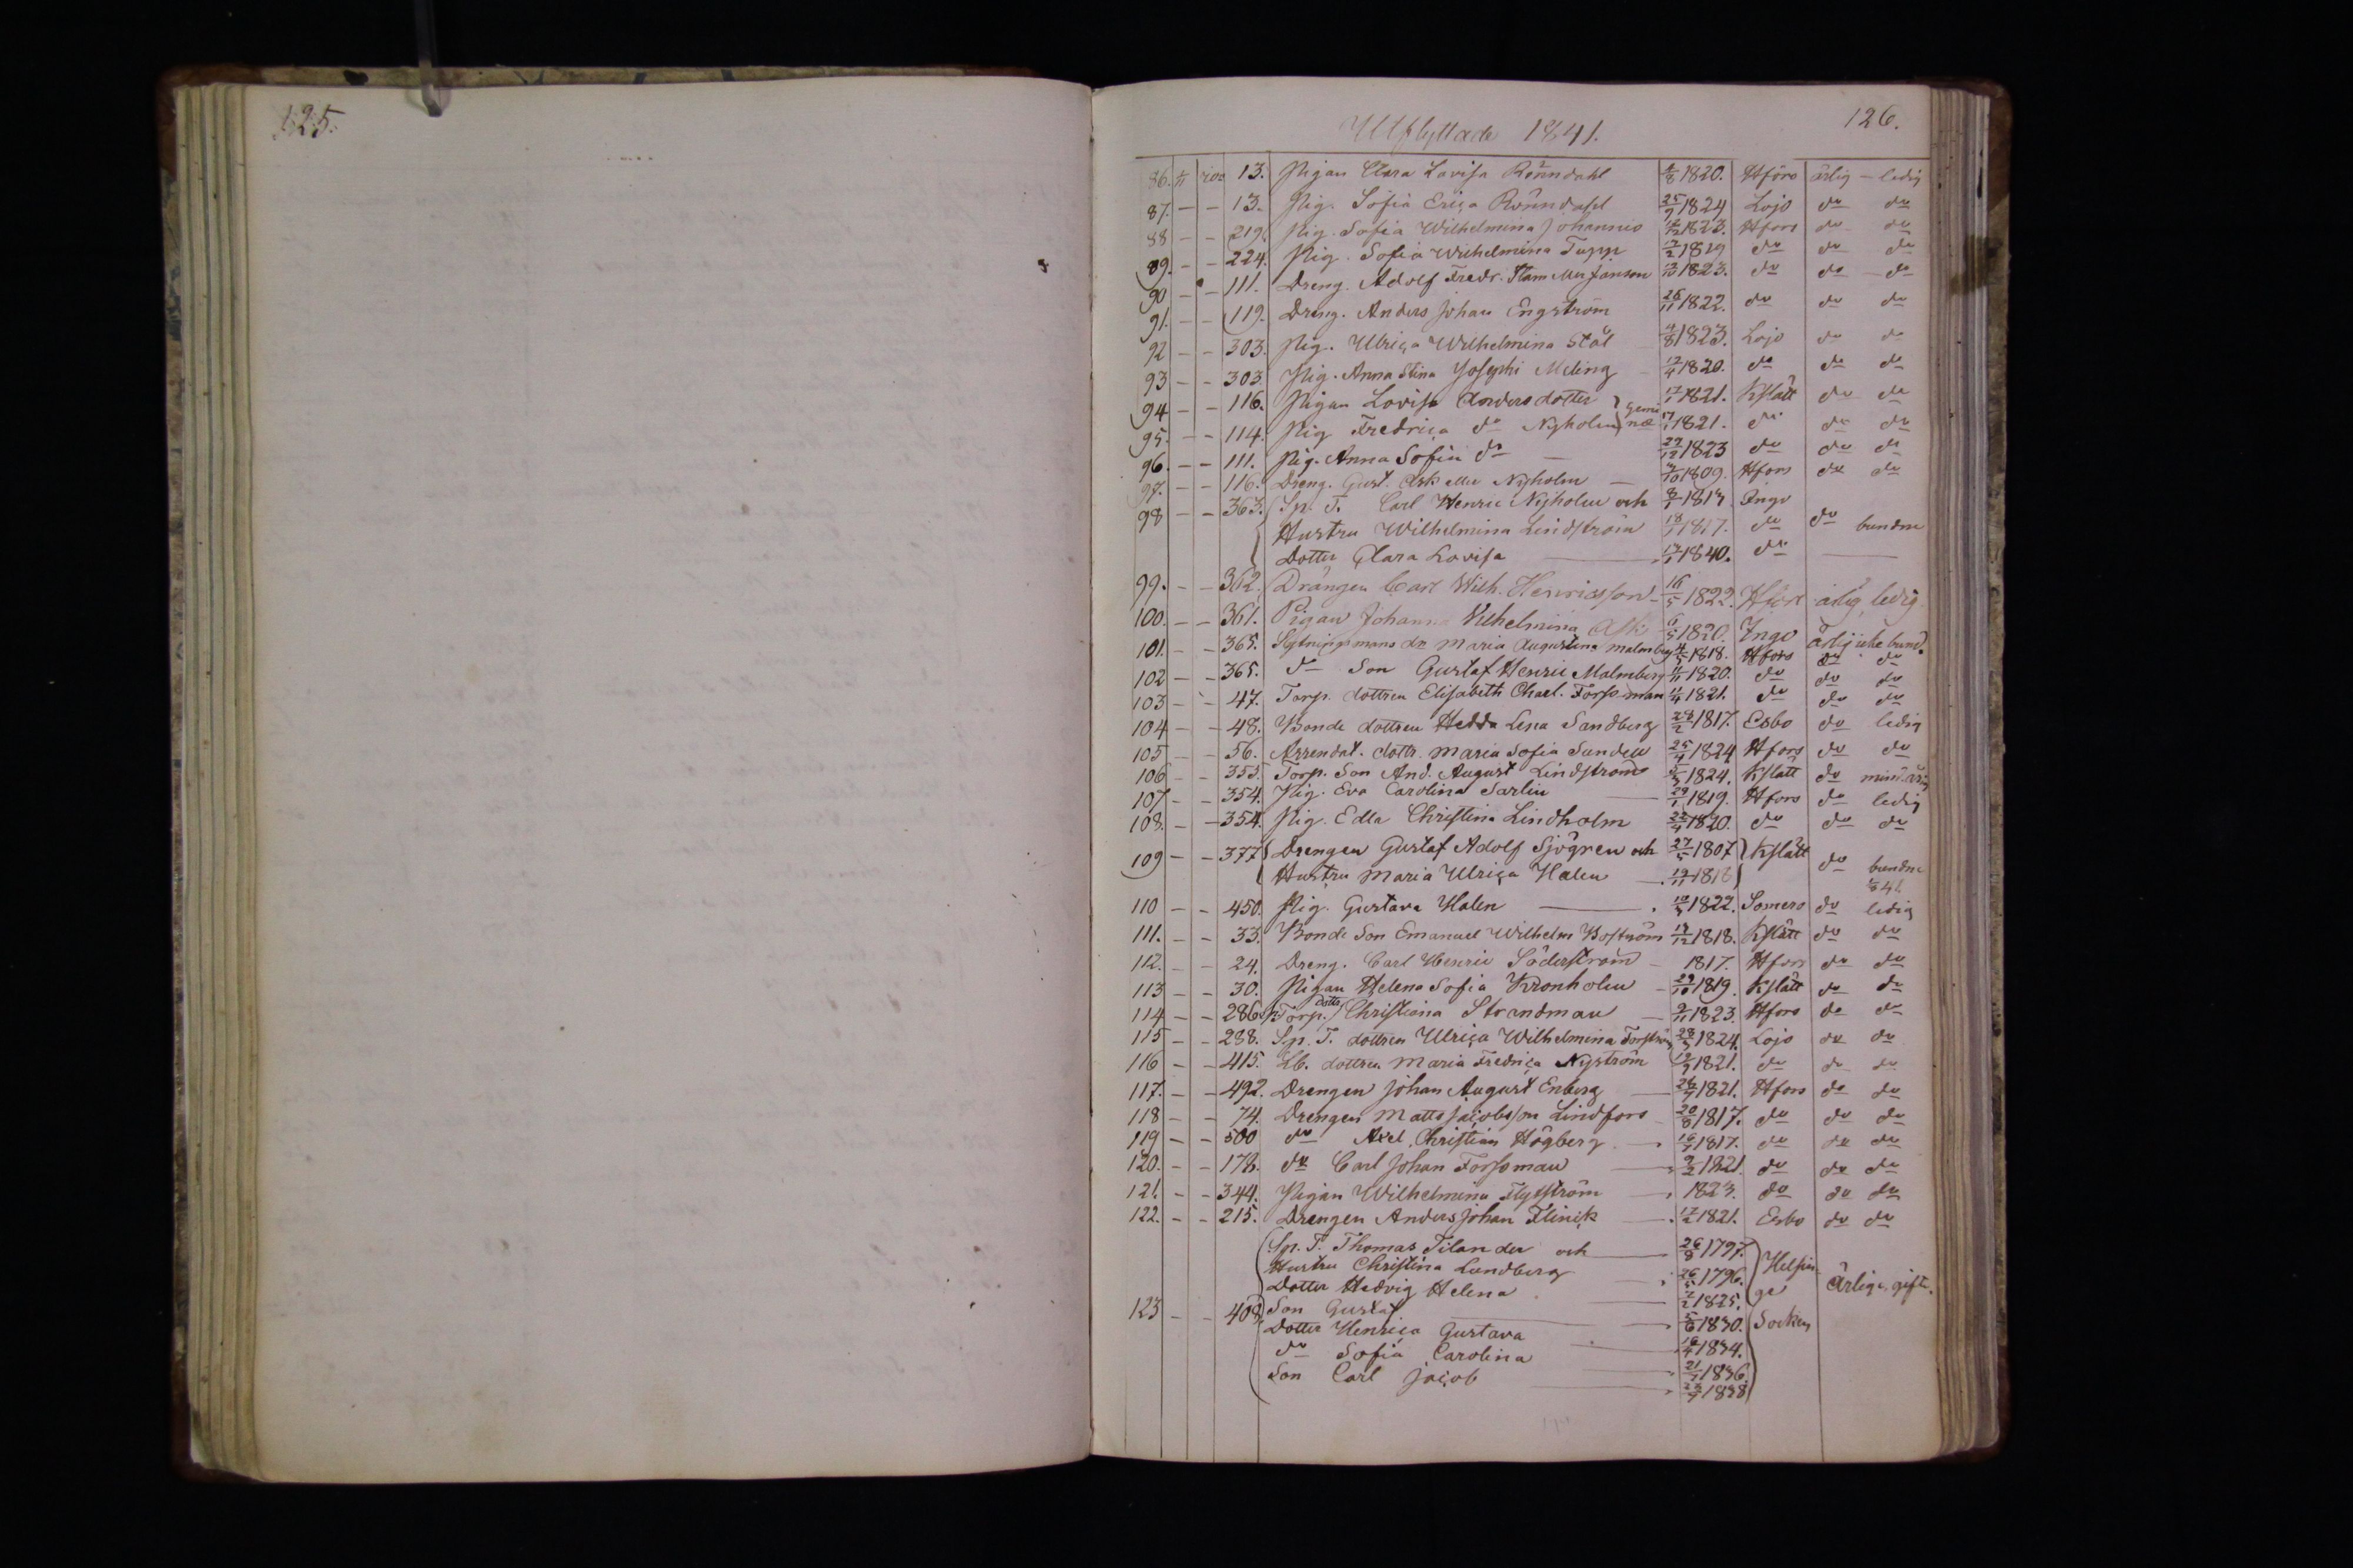 125.
126.
Utflyttade 1841.
86. 13. Pigan Clara Lovisa Rönndahl 1820. Hfors ärlig – ledig
87. – – 13. Pig. Sofia Erica Rönndahl 25/9 1824 Lojo do do
88 – – 219. Pig. Sofia Wilhelmina Johannis 1823. Hfors do do
89. – – 224. Pig. Sofia Wilhelmina Tupp 1819 do do do
90 – – 111. Dreng. Adolf Fredr. 1823. do do do
91. – – 119. Dreng. Anders Johan Engström 26/11 1822. do do do
92 – – 303. Pig. Ulrica Wilhelmina Stål 1823. Lojo do do
93 – – 303. Pig. Anna Stina Josephi Meling – 1820. do do do
94 – – 116. Pigan Lovisa Andersdotter } gemi 1821. Kslätt do do
95. – – 114. Pig Fredrica do Nyholm næ 17/1 1821. do do do
96. – – 111. Pig. Anna Sofia do – 22/12 1823 do do do
97. – – 116. Dreng. Gust. Nyholm – 1809. Hfors do do
98 – – 363. Sp. T. Carl Henric Nyholm och Ingo
Hustru Wilhelmina Lindström 18/1 1817. do do bundne
Dotter Clara Lovisa 1840. do
99. – – 362. Drängen Carl Wilh. Henricsson – 16/5 1822. Hfors ärlig, ledig
100. – – 361. Pigan Johanna Vilhelmina Ask 6/5 1820. Ingo
101. – – 365. dr Maria Augustina Malmberg 1818. Hfors do do
102 – – 365. do Son Gustaf Henric Malmberg 1820. do do do
103 – – 47. Torp. dottren Elisabeth Charl. Forssman 1821. do do do
104 – – 48. Bonde dottren Hedda Lena Sandberg 1817. Esbo do ledig
105 – – 56. Arrendat. dottr. Maria Sofia Sundell 25/4 1824 Hfors do do
106 – – 353. Torp. Son And. August Lindström 1824. Kslätt do
107 – – 354. Pig. Eva Carolina Sarlin 29/1 1819. Hfors do ledig
108. – – 354. Pig. Edla Christina Lindholm 22/4 1820. do do do
109 – – 377 Drengen Gustaf Adolf Sjögren och 27/5 1807 Kslätt do bundne
Hustru Maria Ulrica Halen 1818
110 – – 450. Pig. Gustava Halen 1822. Somero do ledig
111. – – 33. Bonde Son Emanuel Wilhelm Boström 1818. Kslätt do do
112. – – 24. Dreng. Carl Henric Söderström – 1817. Hfors do do
113 – – 30. Pigan Helena Sofia Kronholm – 29/10 1819. Kslätt do do
114 – – 286. Torp. dottr Christiana Strandman – 9/11 1823. Hfors do do
115 – – 288. Sp. T. dottren Ulrica Wilhelmina Forsström 28/5 1824. Lojo do do
116 – – 415. Lb. dottren Maria Fredrica Nyström 1821. do do do
117. – – 492. Drengen Johan August Enberg 1821. Hfors do do
118 – – 74. Drengen Matts Jacobsson Lindfors – 20/8 1817. do do do
119 – – 500 do Axel Christian Högberg 1817. do do do
120. – – 178. do Carl Johan Forssman 9/2 1821. do do do
121. – – 344. Pigan Wilhelmina Flytström 1823. do do do
122. – – 215. Drengen Anders Johan Flinck 17/2 1821. Esbo do do
Sp. T. Thomas Tilander och 26/9 1797. Helsin-
Hustru Christina Lundberg 26/5 1796. ge ärlige, gifte.
Dotter Hedvig Helena 1825.
123 – – 408 Son Gustaf 5/6 1830. Socken
Dotter Henrica Gustava 1834.
do Sofia Carolina 21/1 1836.
Son Carl Jacob 1838